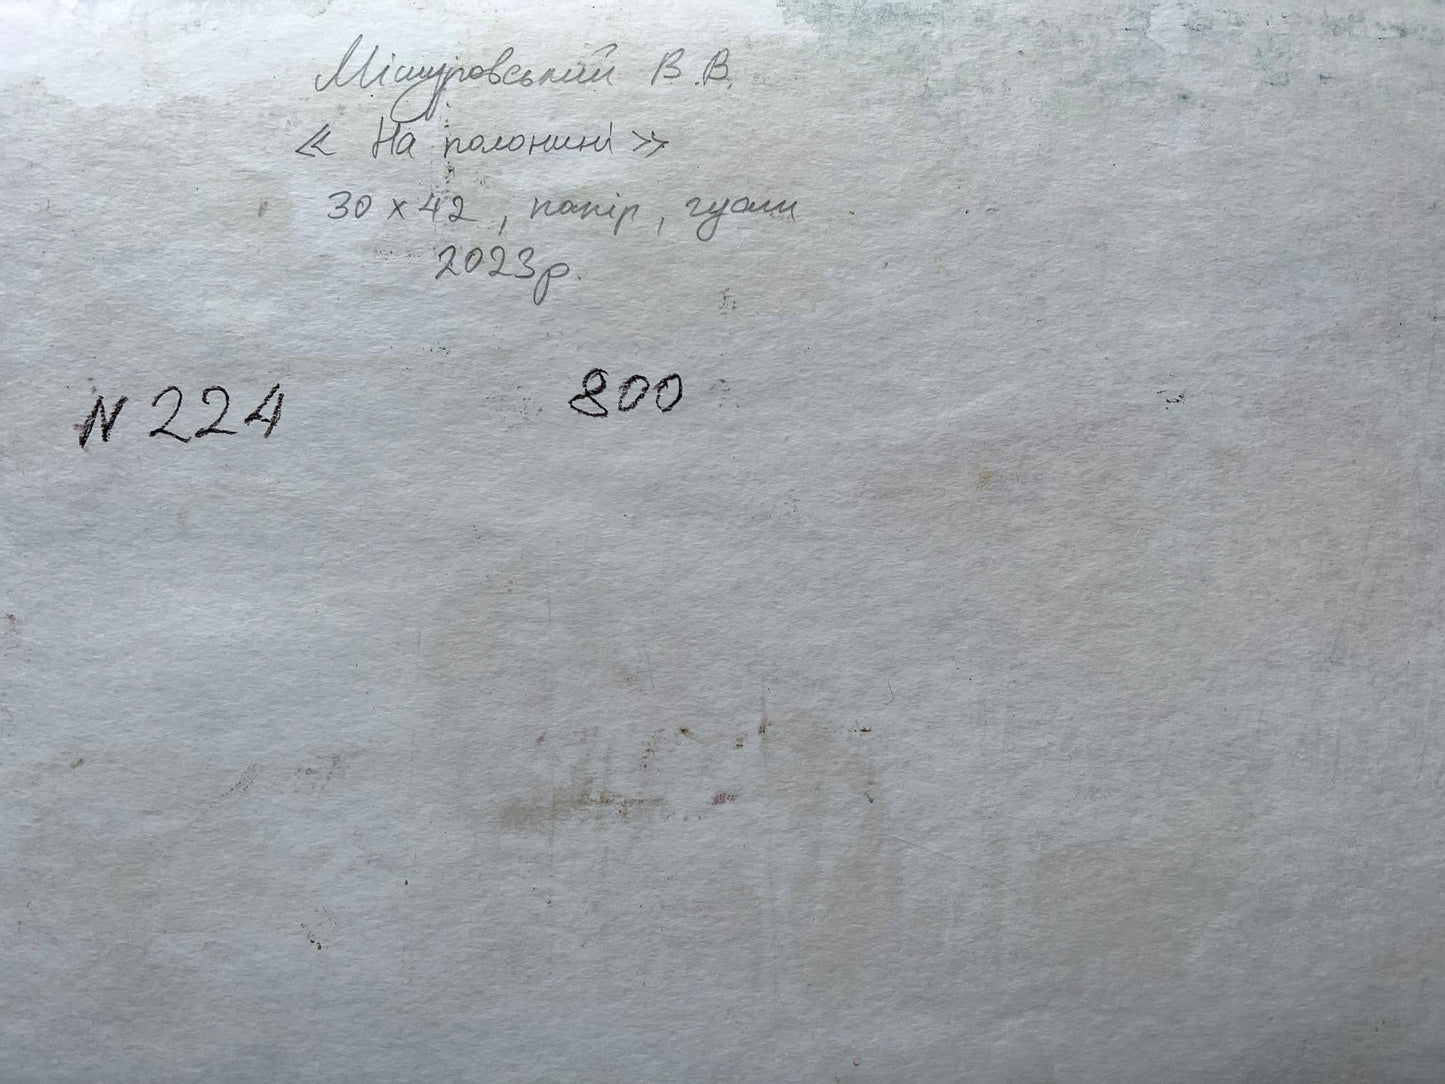 Мішуровський В.В.
« На полонині »
30 x 42, папір, гуаш
2023р.
N 224 800